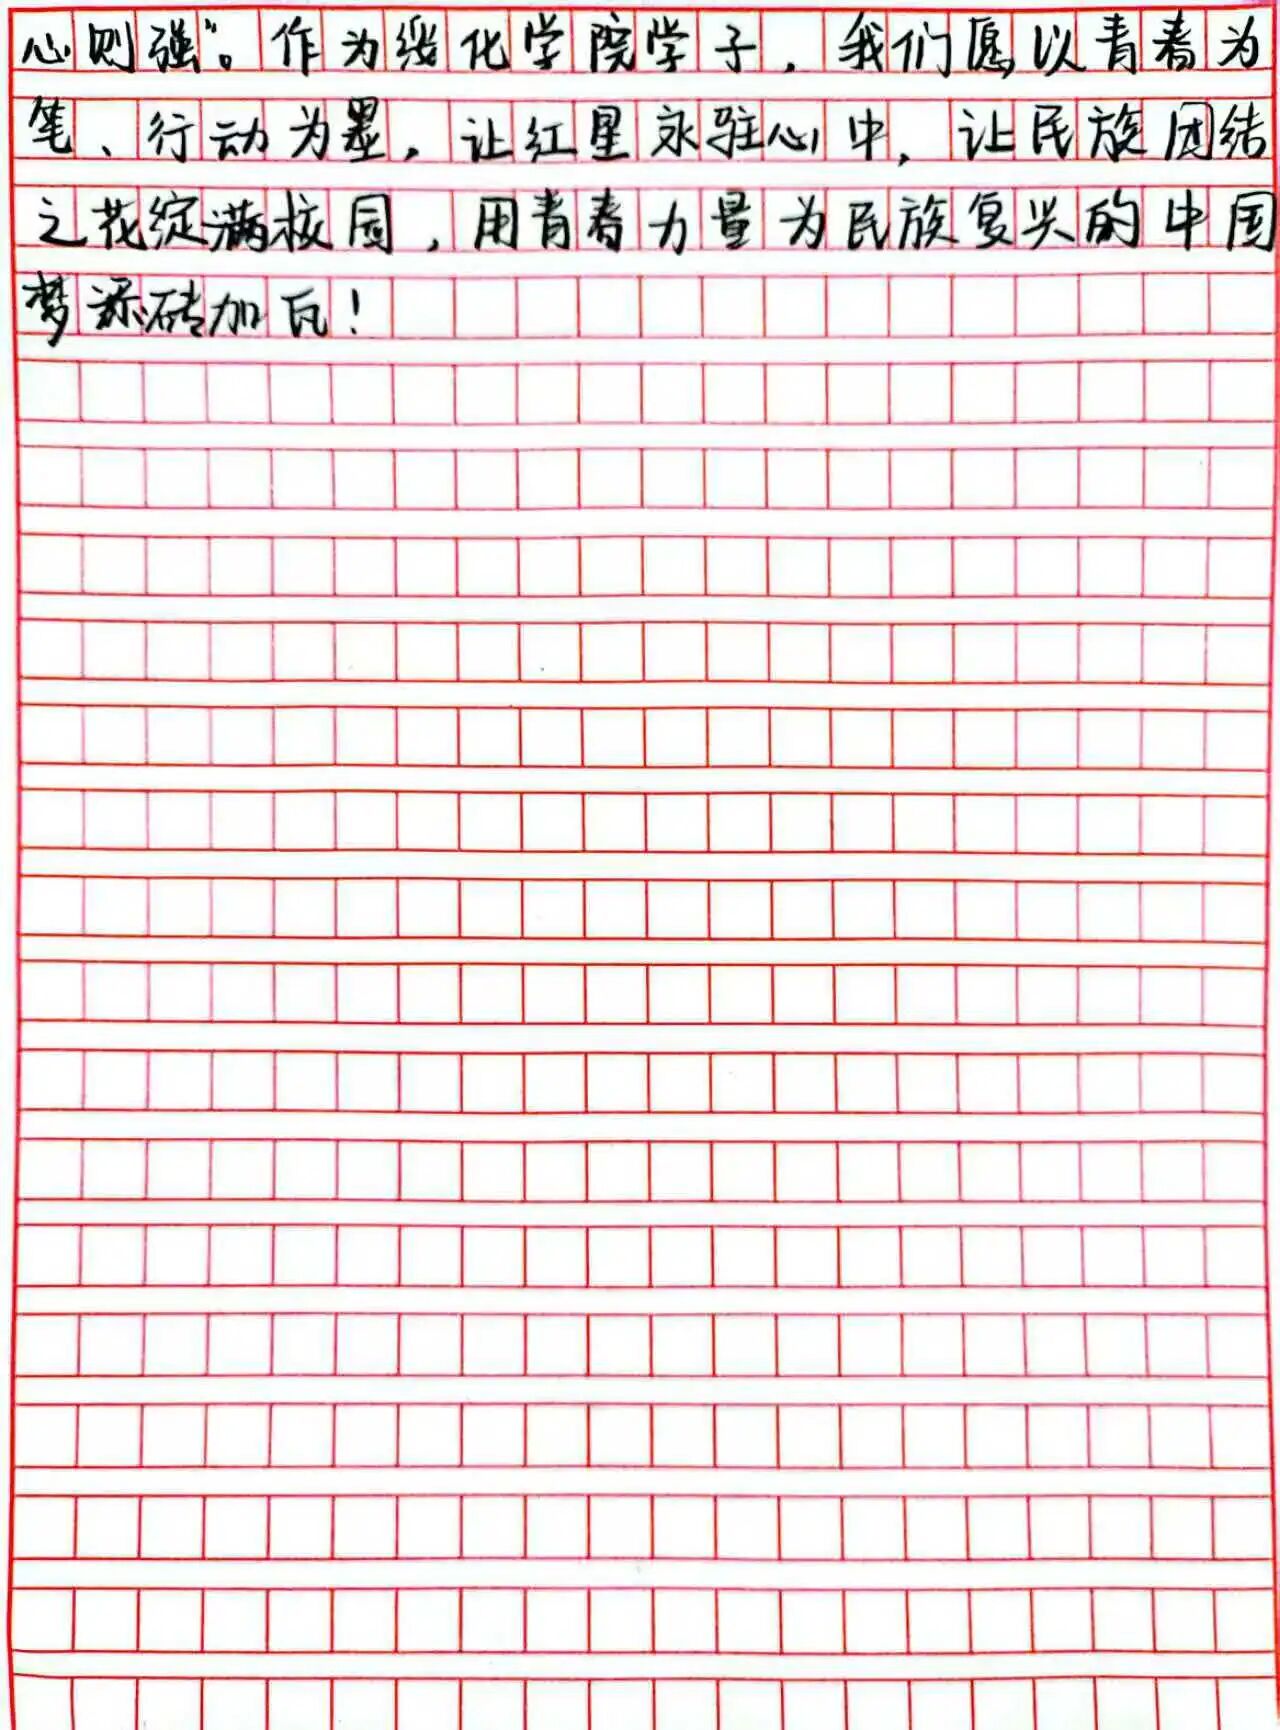 心则强”。作为绥化学院学子，我们愿以青春为
笔、行动为墨，让红星永驻心中，让民族团结
之花绽满校园，用青春力量为民族复兴的中国
梦添砖加瓦！